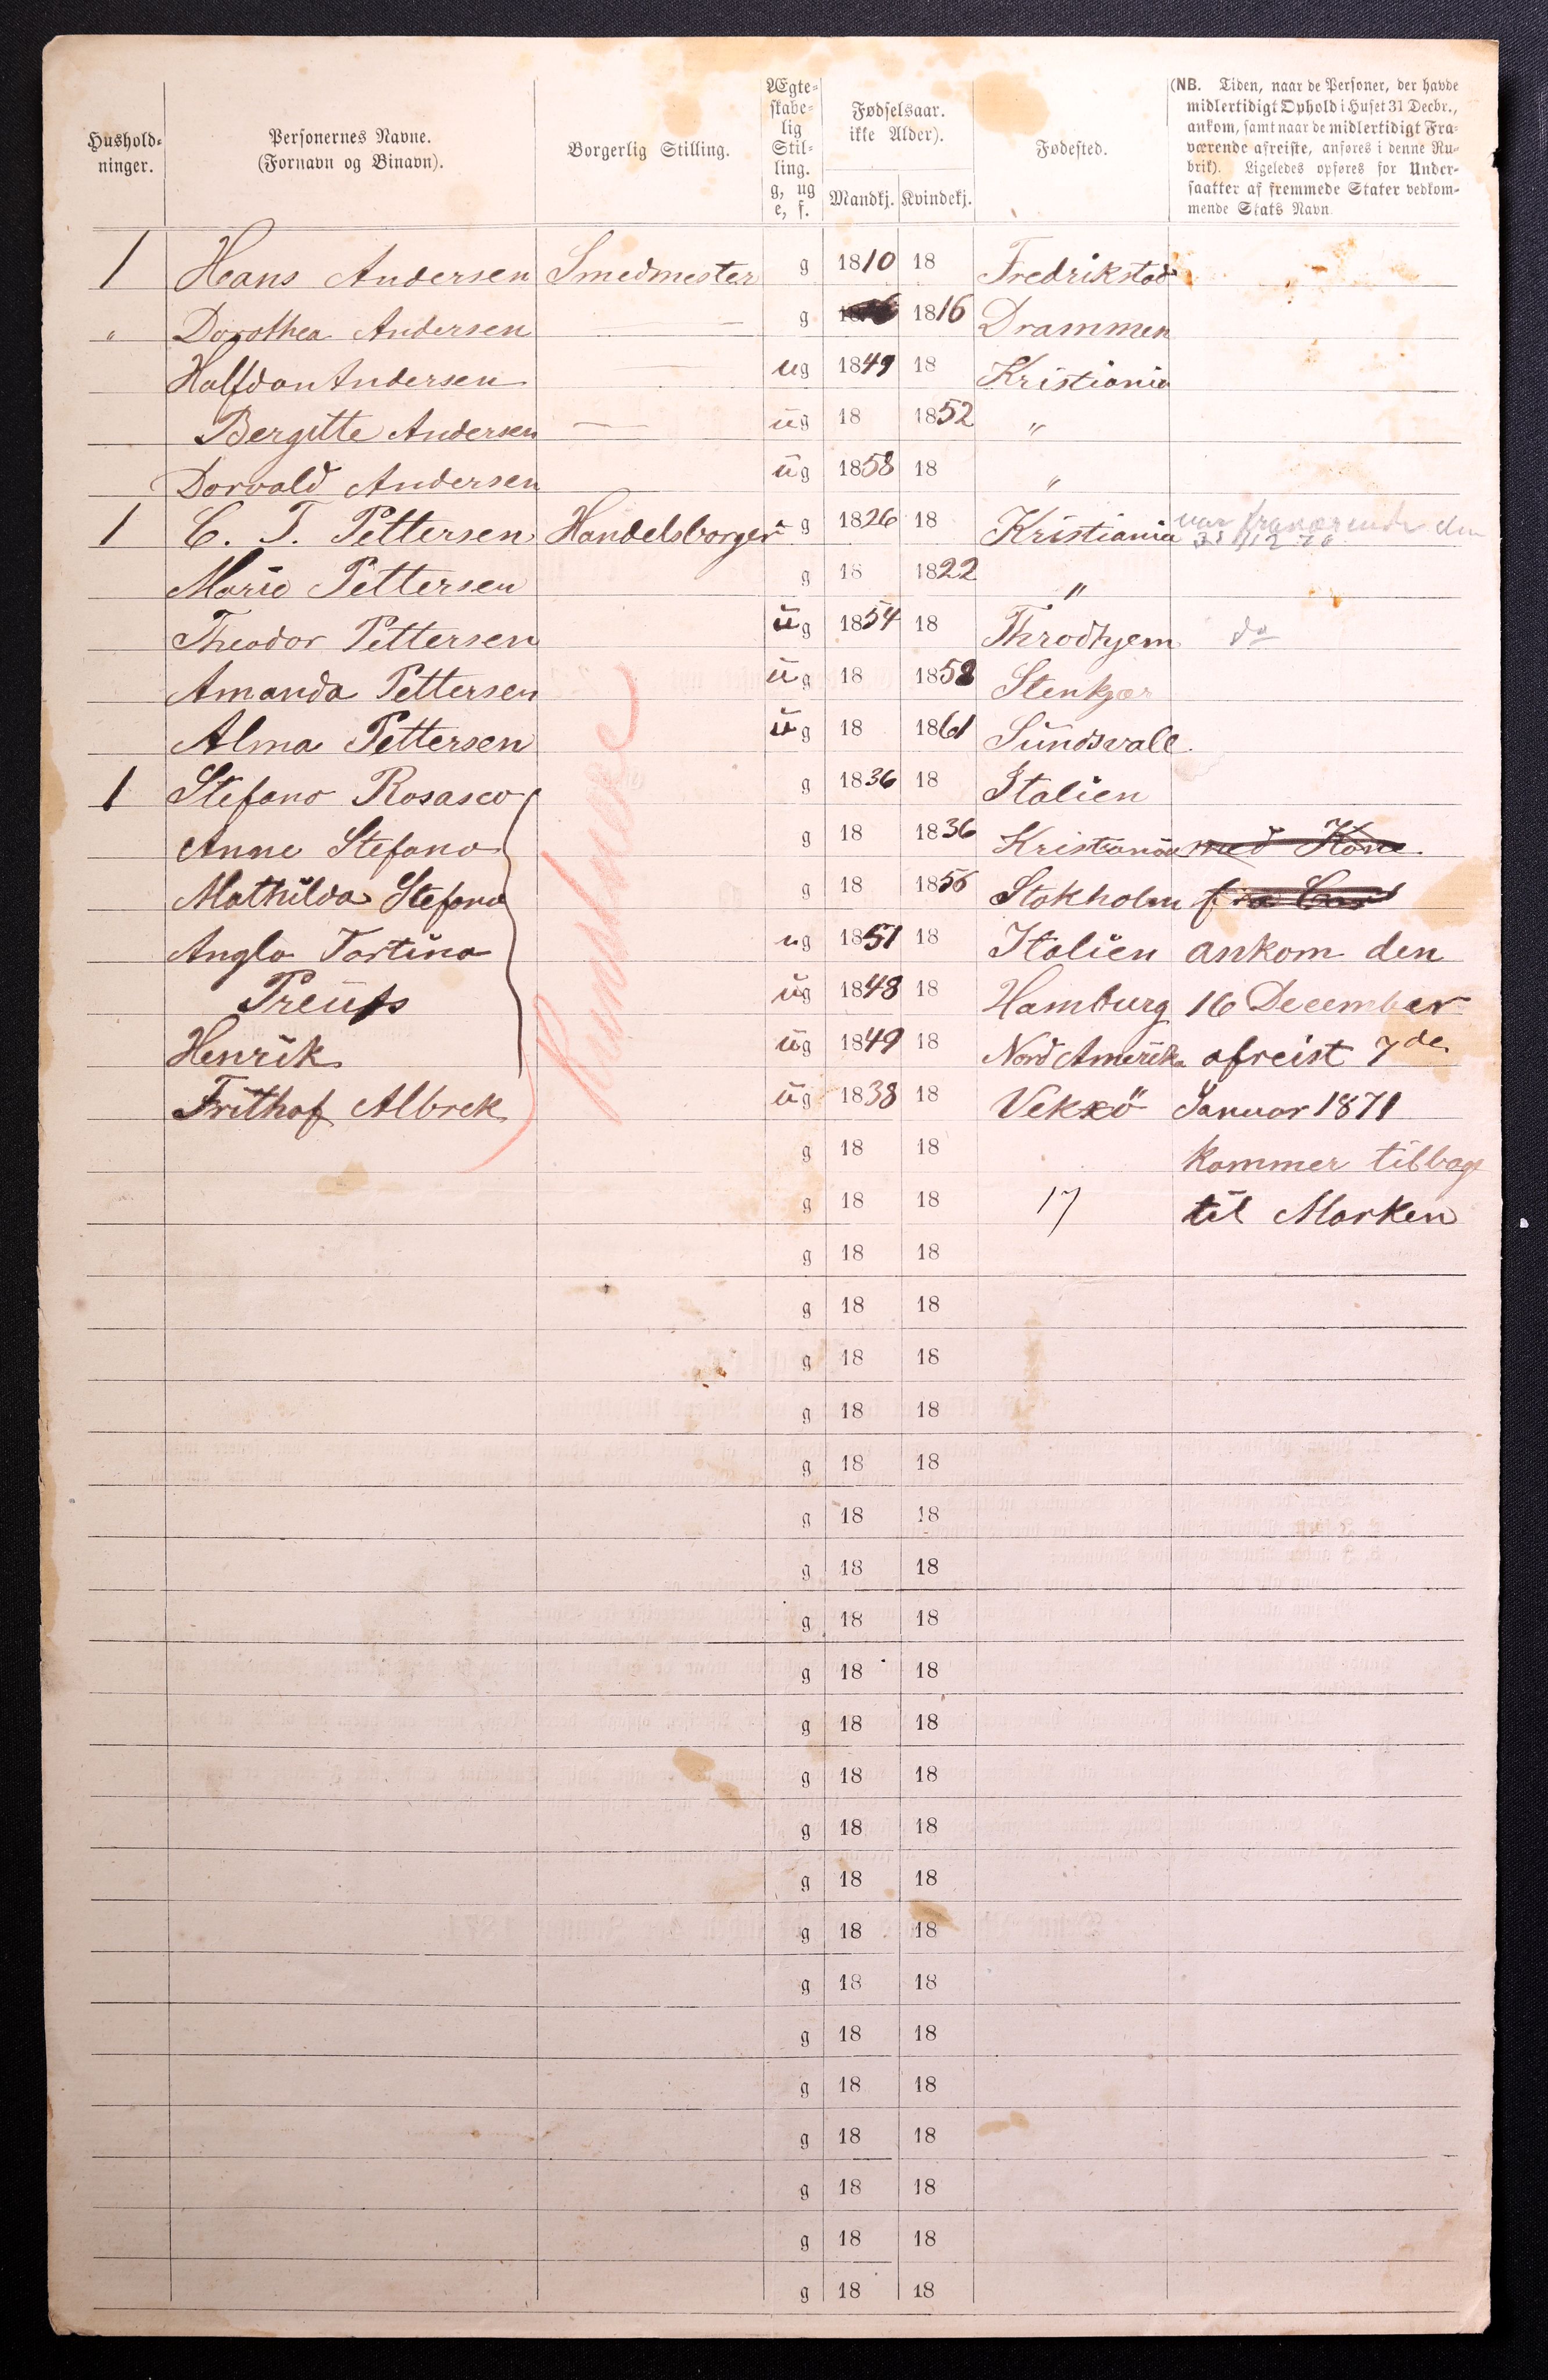 Hushold-
ninger.
Personernes Navne.
(Fornavn og Binavn).
Borgerlig Stilling.
Ægte-
skabe-
lig
Stil-
ling.
g, ug
e, f.
Fødselsaar.
ikke Alder).
Mandkj. Kvindekj.
Fødested.
(NB. Tiden, naar de Personer, der havde
midlertidigt Ophold i Huset 31 Decbr.,
ankom, samt naar de midlertidigt Fra-
værende afreiste, anføres i denne Ru-
brik). Ligeledes opføres for Under-
saatter af fremmede Stater vedkom-
mende Stats Navn.
1 Hans Andersen Smedmester g 1810 18 Fredrikstad
" Dorothea Andersen — g 1816 Drammen
Halfdan Andersen ug 1849 18 Kristiania
Bergitte Andersen — ug 18 1852 "
Dorvald Andersen ug 1858 18 "
1 C. T. Pettersen Handelsborger g 1826 18 Kristiania var fraværende den
31/12 70
Marie Pettersen g 18 1822 "
Theodor Pettersen ug 1854 18 Throdhjem do
Amanda Pettersen ug 18 1858 Stenkjær
Alma Pettersen ug 18 1861 Sundsvall.
1 Stefano Rosasco g 1836 18 Italien
Anne Stefano g 18 1836 Kristiania med Kone
Mathilda Stefano g 18 1856 Stokholm fra
Anglo Tortino ug 1851 18 Italien ankom den
Preuss ug 1848 18 Hamburg 16 December
Henrik ug 1849 18 Nord Amerika afreist 7de
Frithof Albrek ug 1838 18 Vekxö Januar 1871
Kunstnere
g 18 18 kommer tilbage
g 18 18 17 til Marken
g 18 18
g 18 18
g 18 18
g 18 18
g 18 18
g 18 18
g 18 18
g 18 18
g 18 18
g 18 18
g 18 18
g 18 18
g 18 18
g 18 18
g 18 18
g 18 18
g 18 18
g 18 18
g 18 18
g 18 18
g 18 18